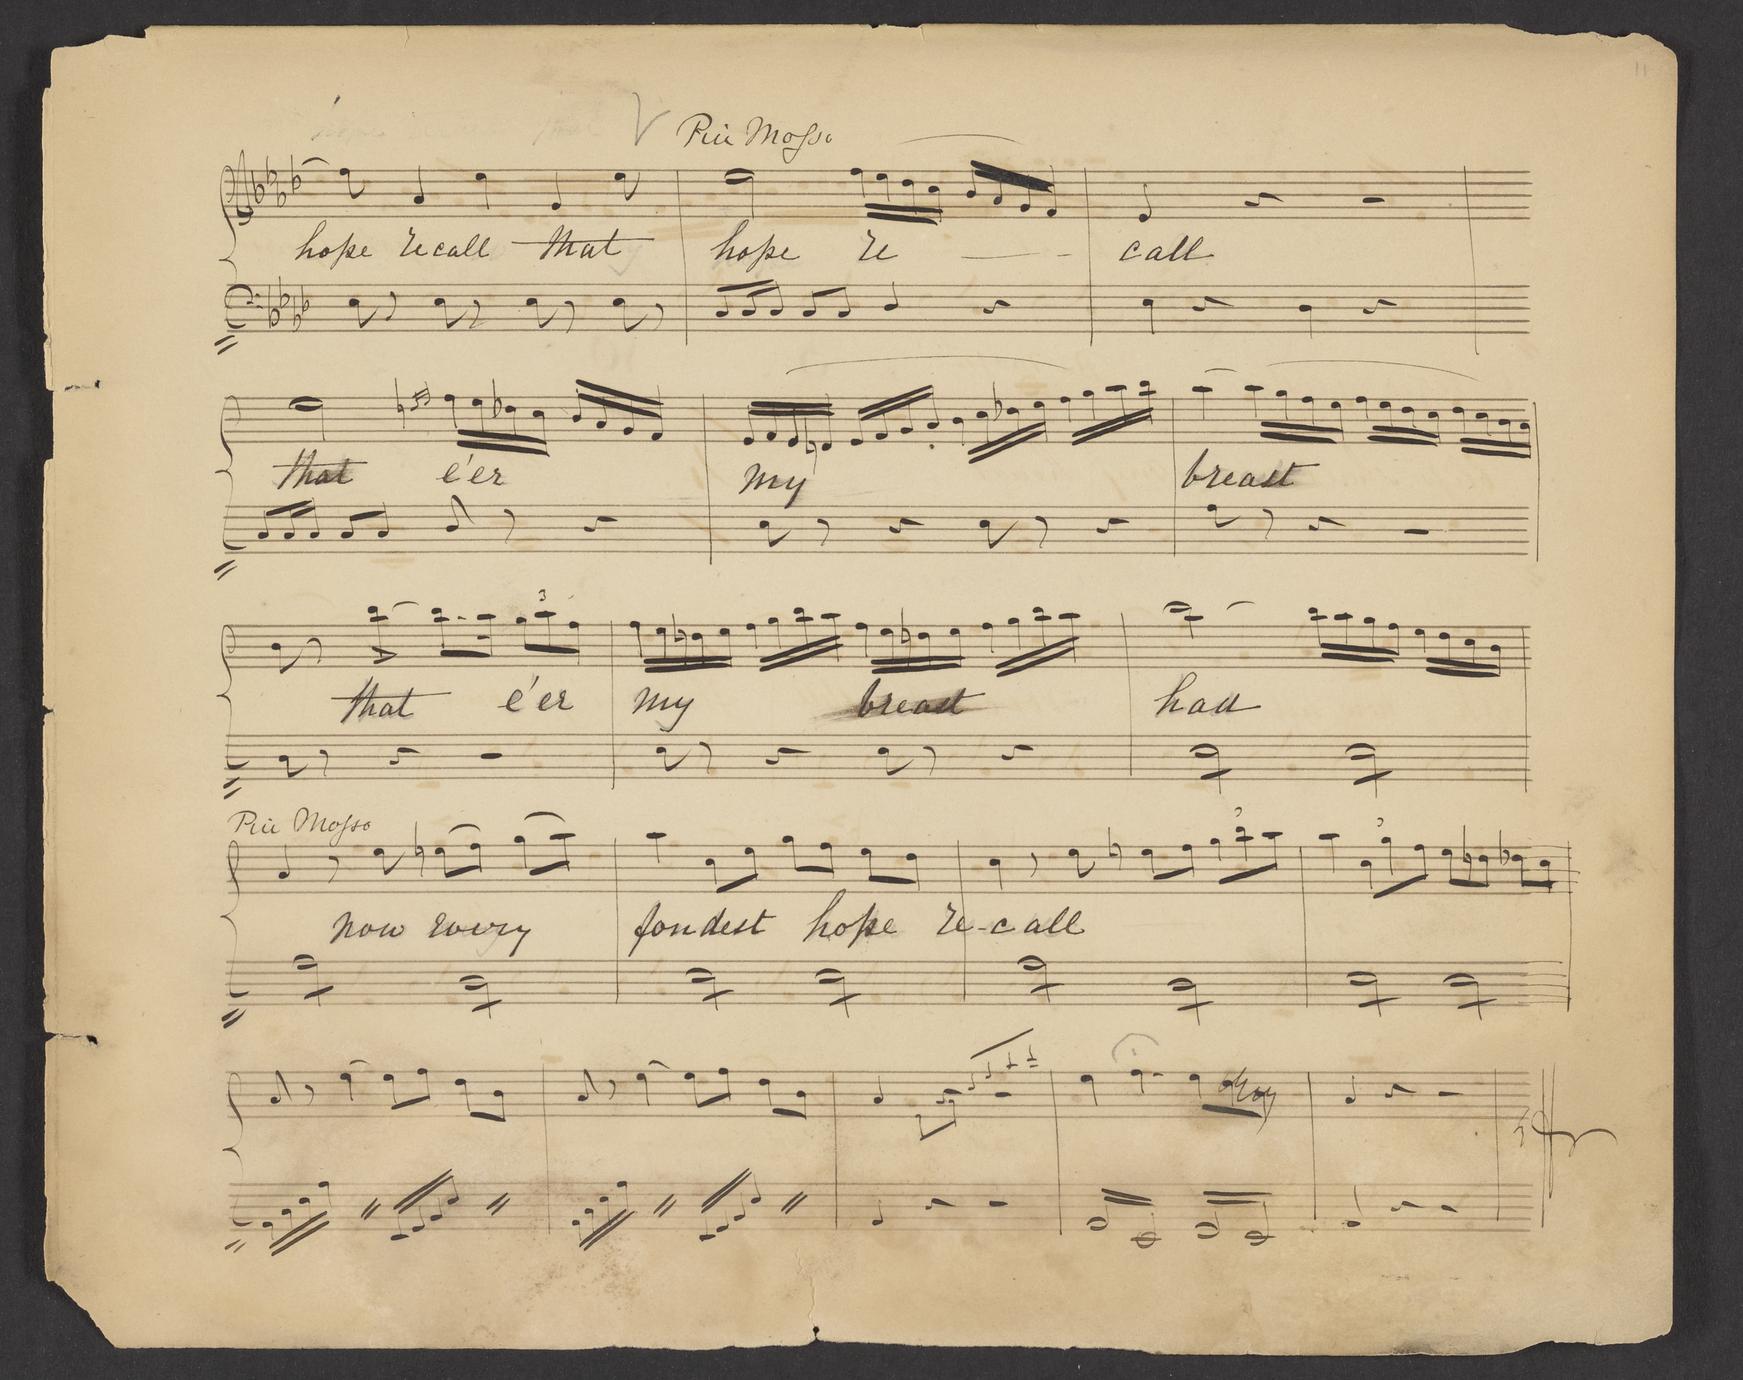 11
Più Mosso
hope recall that hope re - call
that e'er my breast
3
that e'er my breast had
Più Mosso
3 3
now
fondest hope re-call